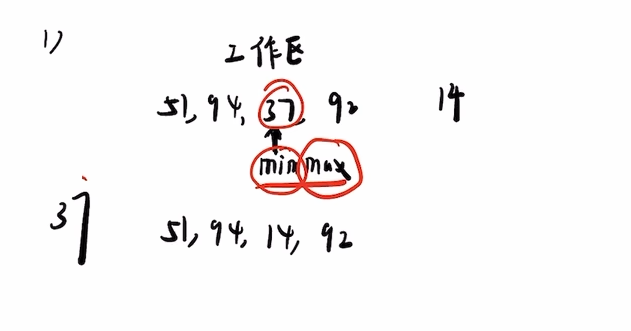 1)
工作区
51, 94, 37, 92 14
min max
37 51, 94, 14, 92